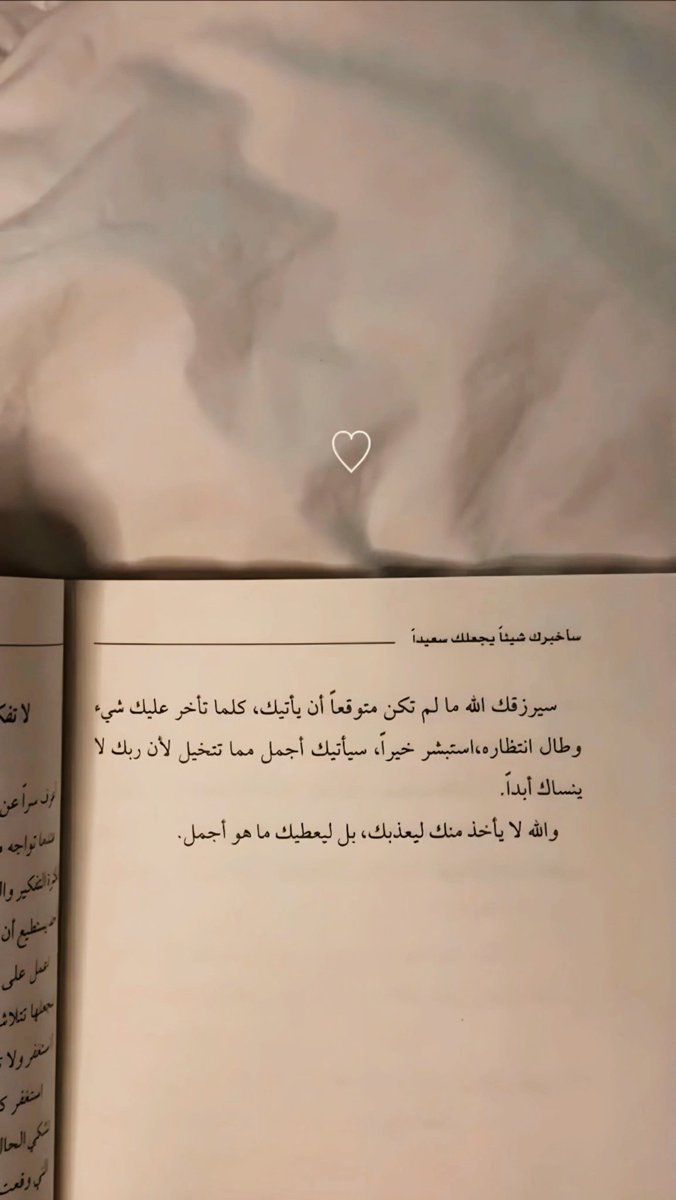 سأخبرك شيئاً يجعلك سعيداً
سيرزقك الله ما لم تكن متوقعاً أن يأتيك، كلما تأخر عليك شيء
وطال انتظاره،استبشر خيراً، سيأتيك أجمل مما تتخيل لأن ربك لا
ينساك أبداً.
والله لا يأخذ منك ليعذبك، بل ليعطيك ما هو أجمل.
لا تفك
سراً عن
تواجه
التفكير وال
يستطيع أن
على
تتلاش
استغفر ولا
استغفر ك
الحال
وقعت